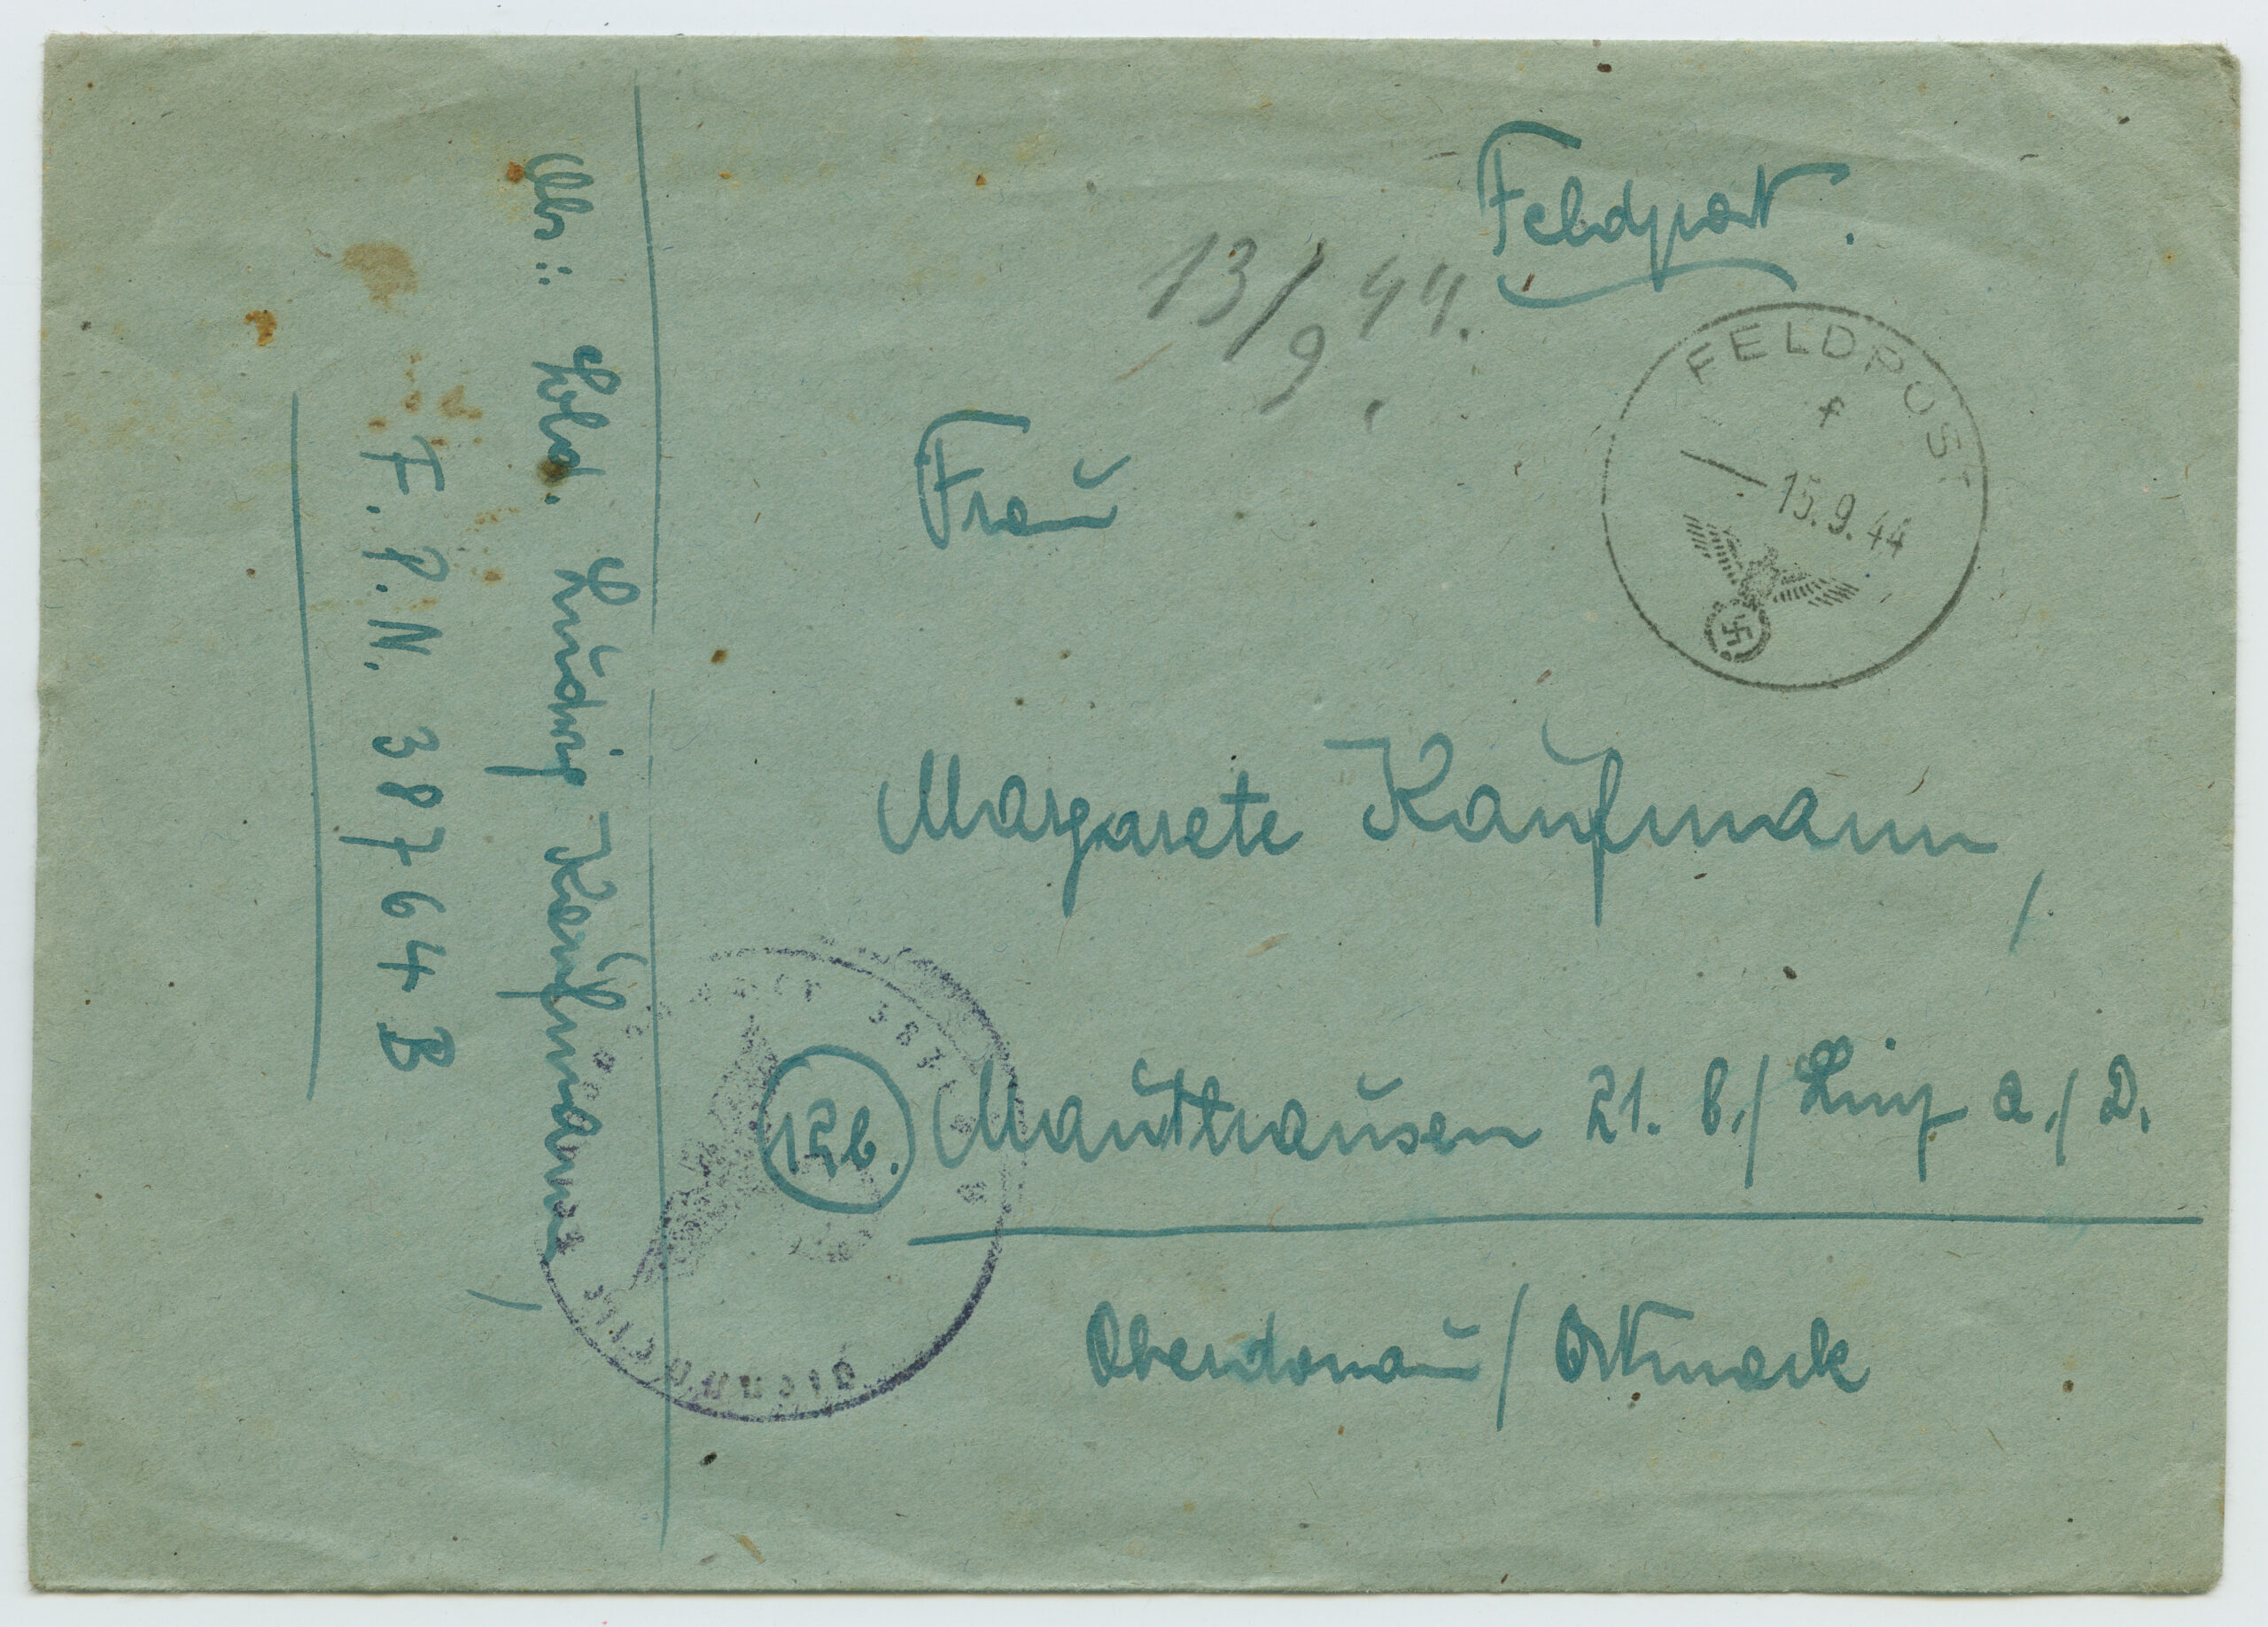 Feldpost.
13/9. 44.
FELDPOST
f
15.9.44
Frau
Margarete Kaufmann,
12b. Mauthausen 21. b./ Linz a./ D.
Oberdonau / Ostmark
Abs.: Sold. Ludwig Kaufmann,
F.P.N. 38764 B